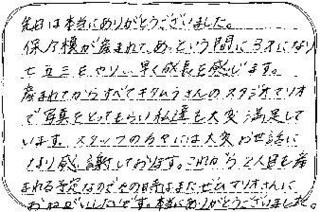 先日は本当にありがとうございました。
保乃模が産まれて、あっという間に3才になり
七五三をやり、早く成長を感じます。
産まれてからすべてキタムラさんのスタジオマリオ
で写真をとってもらい私達も大変満足して
います。スタッフの方々には大変お世話に
なり感謝しております。これから2人目も産
まれる予定なのでその時はまたぜひマリオさんに
おねがいしたいです。本当にありがとうございました。